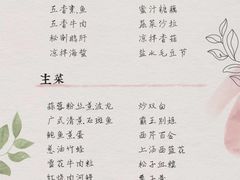 五香熏鱼 蜜汁糖藕
五香牛肉 蔬菜沙拉
松刺鹅肝 凉拌香菇
凉拌海蜇 盐水毛豆节
主菜
蒜蓉粉丝蒸波龙 炒双白
广式清蒸石斑鱼 霸王别姬
鲍鱼蒸蛋 西芹百合
葱油竹蛏 上汤西蓝花
雪花牛肉粒 松子玉糯
红烧肉河鳗